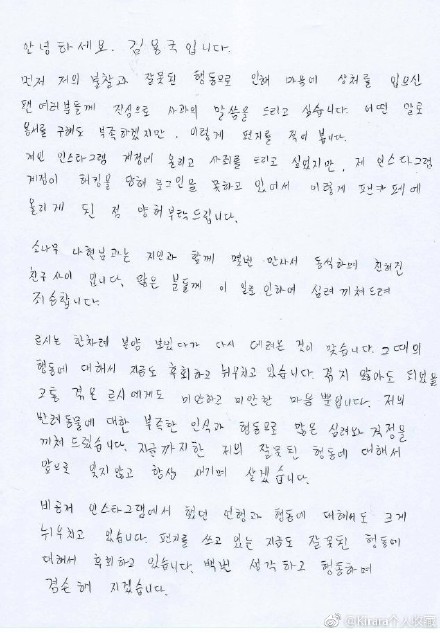 안녕하세요. 김용국입니다.
먼저 저의 불찰과 잘못된 행동으로 인해 마음에 상처를 입으신
팬여러분들께 진심으로 사과의 말씀을 드리고 싶습니다. 어떤 말로
용서를 구해도 부족하겠지만, 이렇게 편지를 적어 봅니다.
개인 인스타그램 계정에 올리고 사죄를 드리고 싶었지만, 제 인스타그램
계정이 해킹을 당해 로그인을 못하고 있어서 이렇게 팬카페에
올리게 된 점 양해부탁드립니다.
소나무 나현님과는 지인과 함께 몇번 만나서 동석하며 친해진
친구 사이 입니다. 많은 분들께 이 일로 인하여 심려 끼쳐드려
죄송합니다.
르시는 한차례 분양 보냈다가 다시 데려온 것이 맞습니다. 그때의
행동에 대해서 지금도 후회하고 뉘우치고 있습니다. 겪지 않아도 되었을
고통 겪은 르시에게도 미안하고 미안한 마음 뿐입니다. 저의
반려동물에 대한 부족한 인식과 행동으로 많은 심려와 걱정을
끼쳐 드렸습니다. 지금까지한 저의 잘못된 행동에 대해서
앞으로 잊지않고 항상 새기며 살겠습니다.
비공개 인스타그램에서 했던 언행과 행동에 대해서도 크게
뉘우치고 있습니다. 편지를 쓰고 있는 지금도 잘못된 행동에
대해서 후회하고 있습니다. 백번 생각하고 행동하며
겸손해 지겠습니다.
@Kirara个人收藏